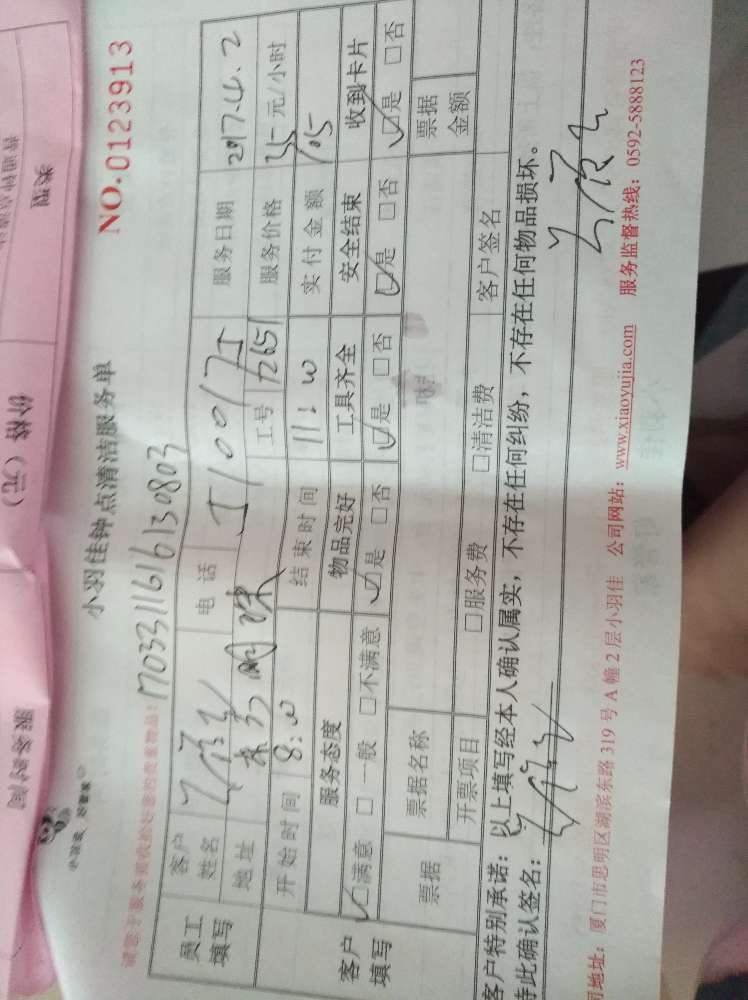 类型
价格（元）
服务时间
小羽佳 好管家
小羽佳钟点清洁服务单
NO.0123913
1703311616130803
员工填写
客户姓名
电话
服务日期 2017.4.2
地址
工号 12651
服务价格 35元/小时
开始时间 8:00
结束时间 11:00
实付金额 105
客户填写
服务态度 物品完好 工具齐全 安全结束 收到卡片
☑满意 □一般 □不满意 ☑是 □否 ☑是 □否 ☑是 □否 ☑是 □否
票据
票据名称
票据金额
开票项目 □服务费 □清洁费
客户签名
客户特别承诺：以上填写经本人确认属实，不存在任何纠纷，不存在任何物品损坏。
特此确认签名：
司地址：厦门市思明区湖滨东路319号A幢2层小羽佳 公司网站：www.xiaoyujia.com 服务监督热线：0592-5888123